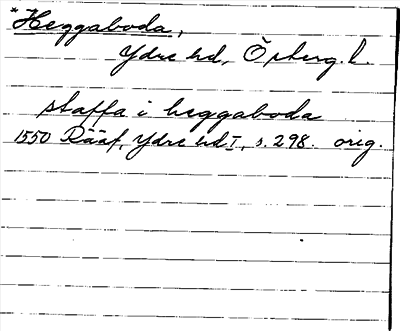 *Heggaboda,
Ydre hd, Österg. l.
staffa i heggaboda
1550 Rääf, Ydre hd I, s. 298. orig.